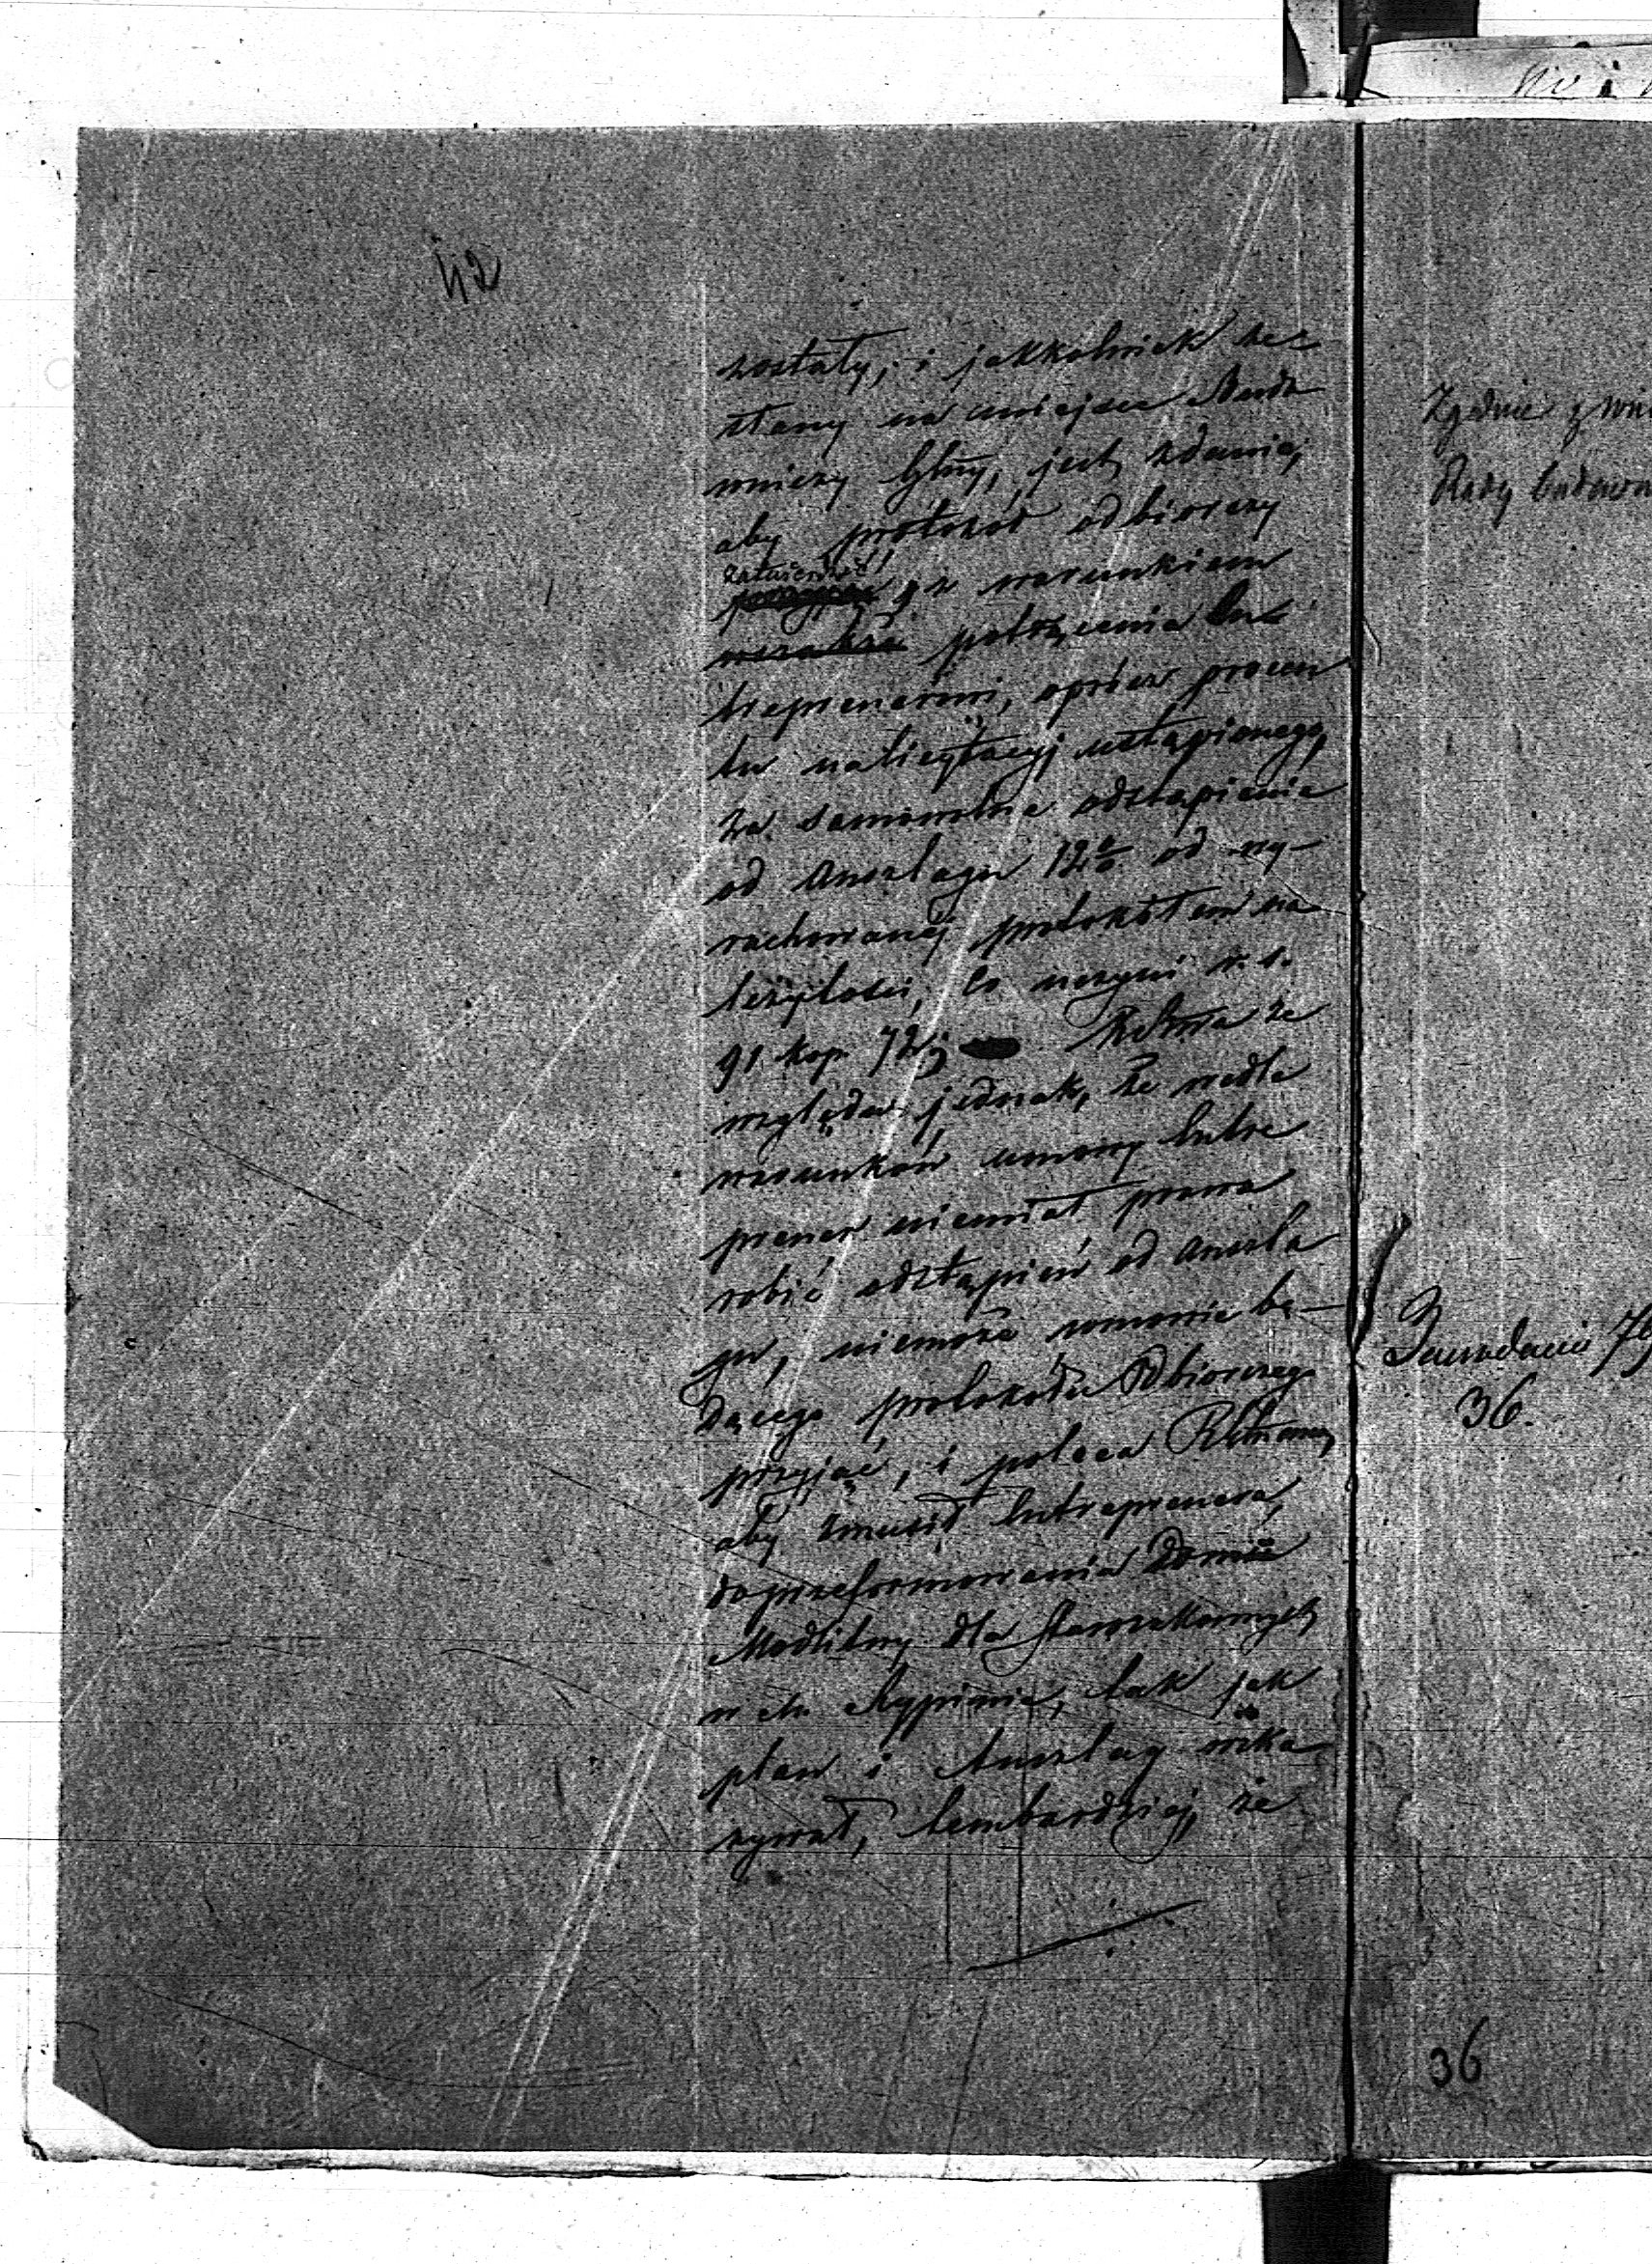 42
zostały, i jakkolwiek ze-
słany na miejsce Budo
wniczy Głny, jest zdania,
aby protokół odbiorczy
zatwierdzić
z warunkiem
wszakże potrącenia En-
treprenerowi, oprócz procen
tu na licytacyj ustąpionego,
za samowolne odstąpienie
od Anszlagu 12% od wy-
rachowanej protokółem na
leżytości, co uczyni r. s.
91 kop. 72; Retma ze
względu jednak, że wedle
warunków umowy Entre
prener niemiał prawa
robić odstąpień od Anszla
gu, niemoże w mowie bę-
dącego protokółu odbiorczego
przyjąć, i poleca
aby zmusił Entreprenera,
do przeformowania Domu
Modlitwy dla Starozakonnych
w m. Rypinie, tak jak
plan i Anszlag wska
zywał, tembardziej, że
Zgodnie z wni
Rady budown
36.
36